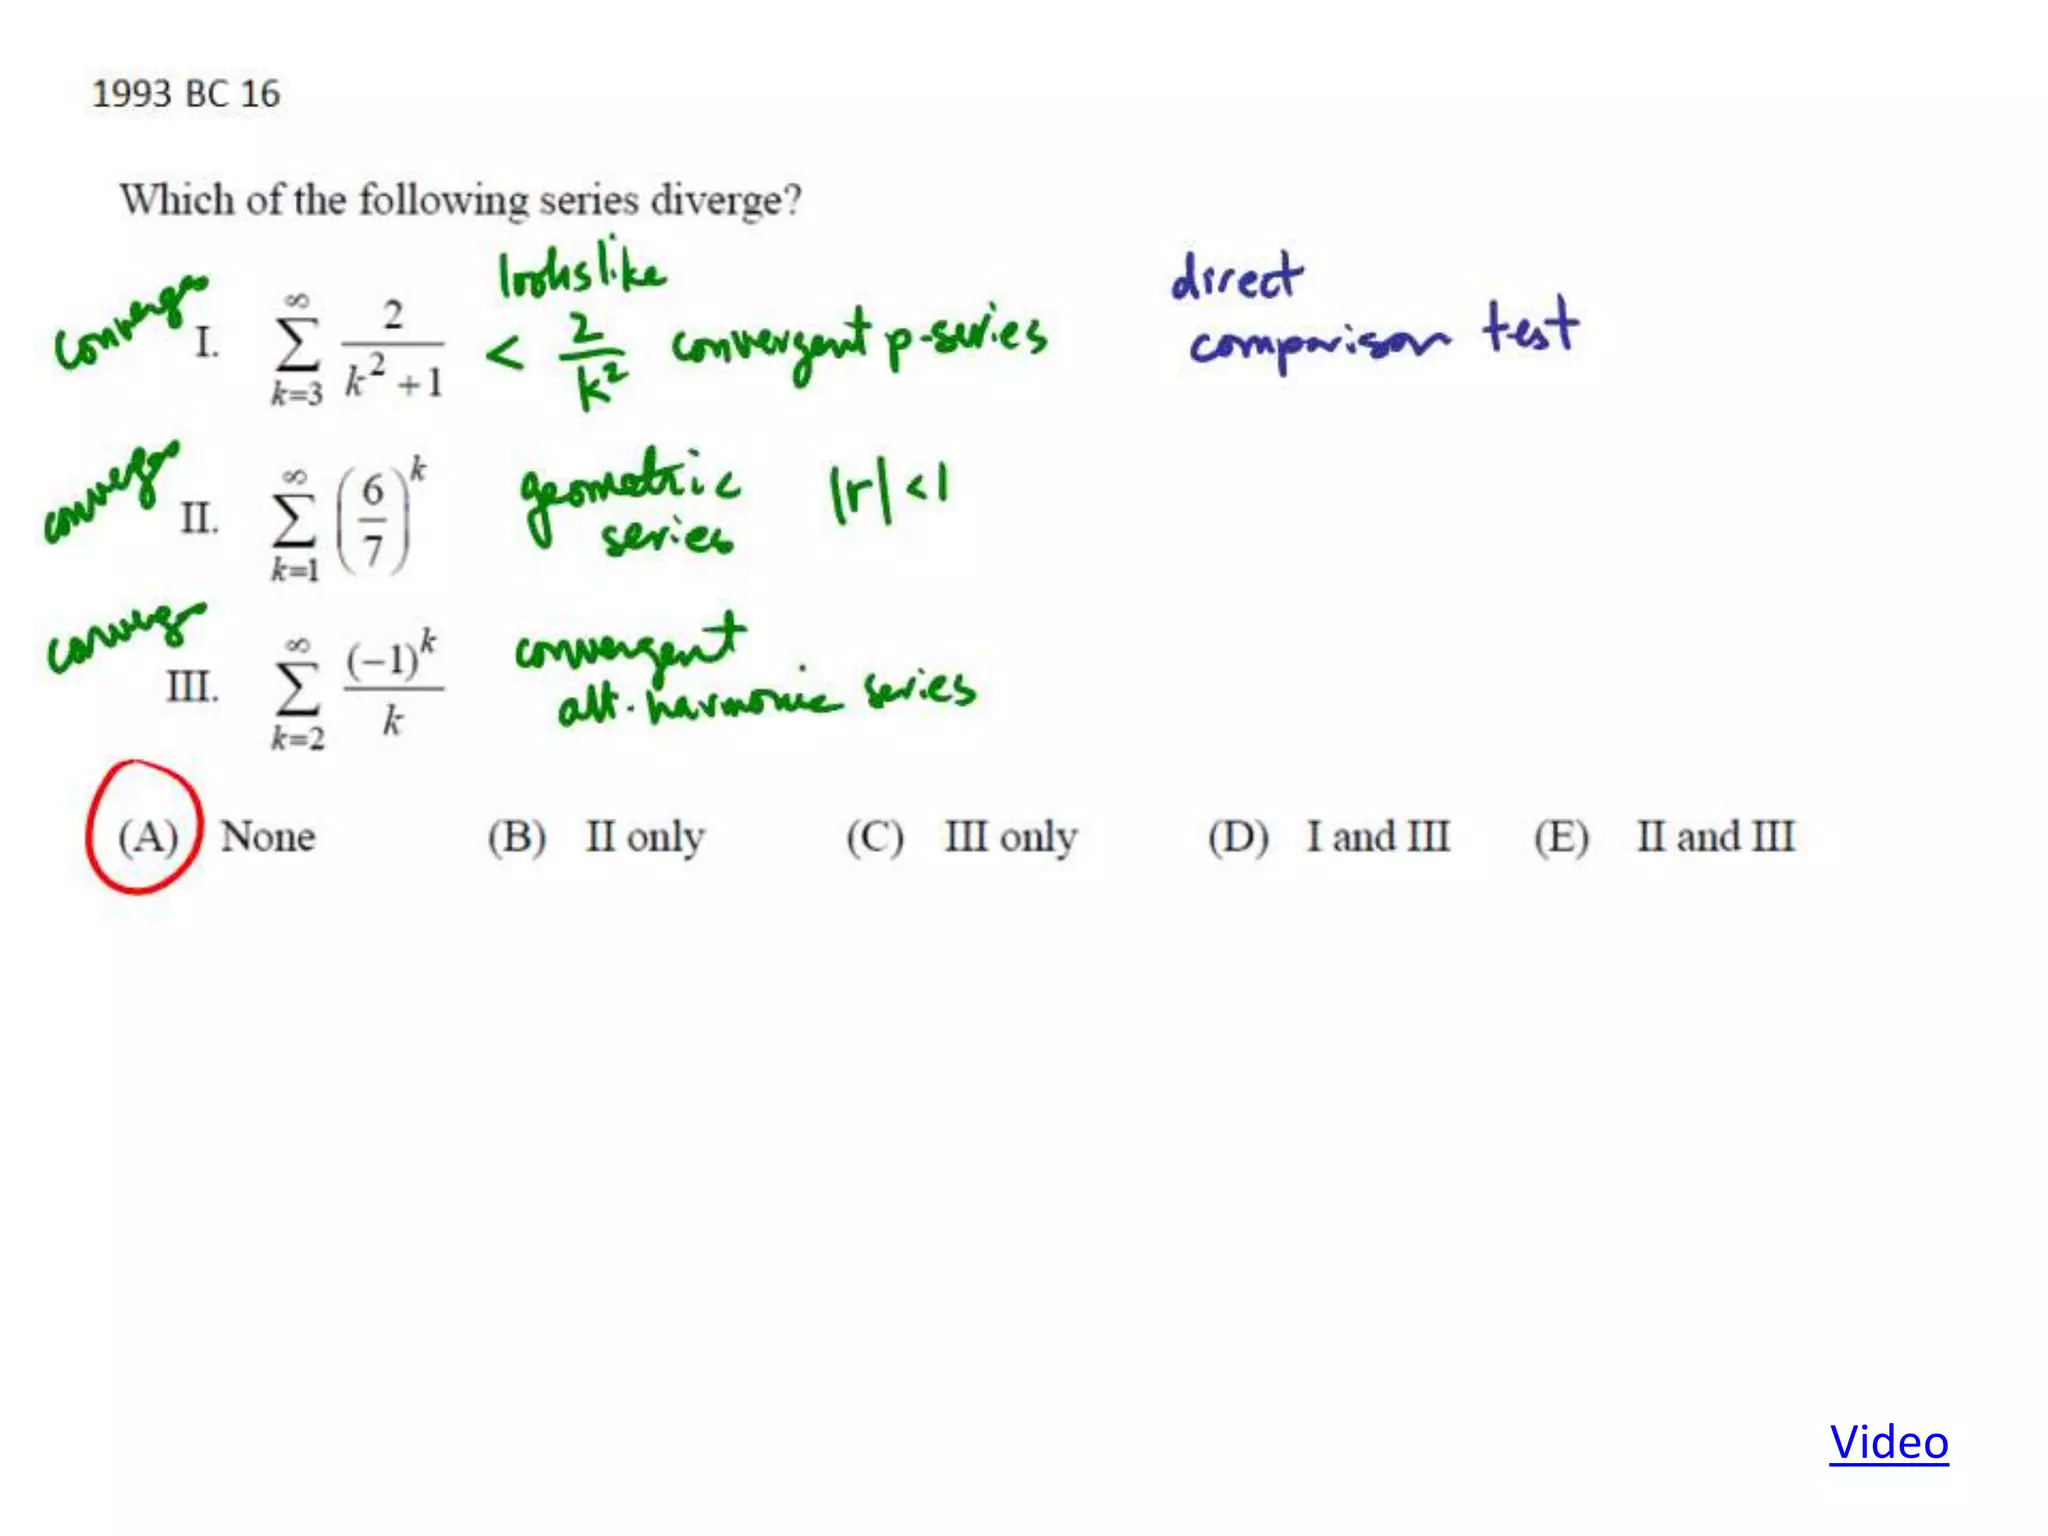 1993 BC 16
Which of the following series diverge?
converges I. ∞ ∑ k=3 2/(k² + 1) looks like < 2/k² convergent p-series direct comparison test
converges II. ∞ ∑ k=1 (6/7)^k geometric series |r| < 1
converges III. ∞ ∑ k=2 (−1)^k/k convergent alt. harmonic series
(A) None (B) II only (C) III only (D) I and III (E) II and III
Video